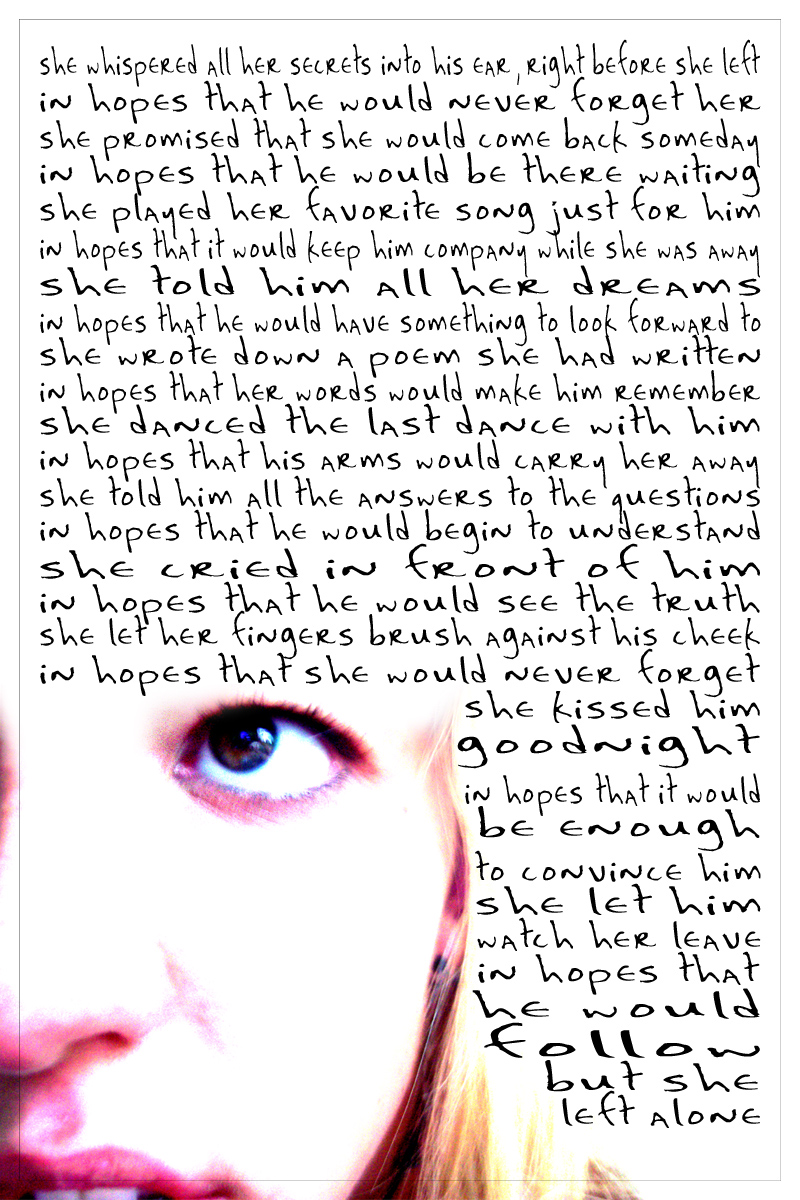 she whispered all her secrets into his ear, right before she left
in hopes that he would never forget her
she promised that she would come back someday
in hopes that he would be there waiting
she played her favorite song just for him
in hopes that it would keep him company while she was away
she told him all her dreams
in hopes that he would have something to look forward to
she wrote down a poem she had written
in hopes that her words would make him remember
she danced the last dance with him
in hopes that his arms would carry her away
she told him all the answers to the questions
in hopes that he would begin to understand
she cried in front of him
in hopes that he would see the truth
she let her fingers brush against his cheek
in hopes that she would never forget
she kissed him
goodnight
in hopes that it would
be enough
to convince him
she let him
watch her leave
in hopes that
he would
follow
but she
left alone